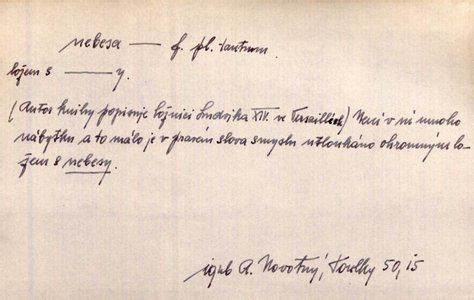 nebesa — f. pl. tantum
ložem s — y.
(Autor knihy popisuje ložnici Ludvíka XIV. ve Versaillích) Není v ní mnoho
nábytku a to málo je v pravém slova smyslu utloukáno ohromným lo-
žem s nebesy.
A. Novotný, Toulky 50, 15